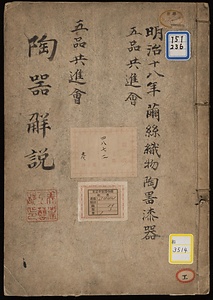 明治十八年 繭絲織物陶器漆器
五品共進會
五品共進會
陶器解説
四八七二
151
236
3514
工